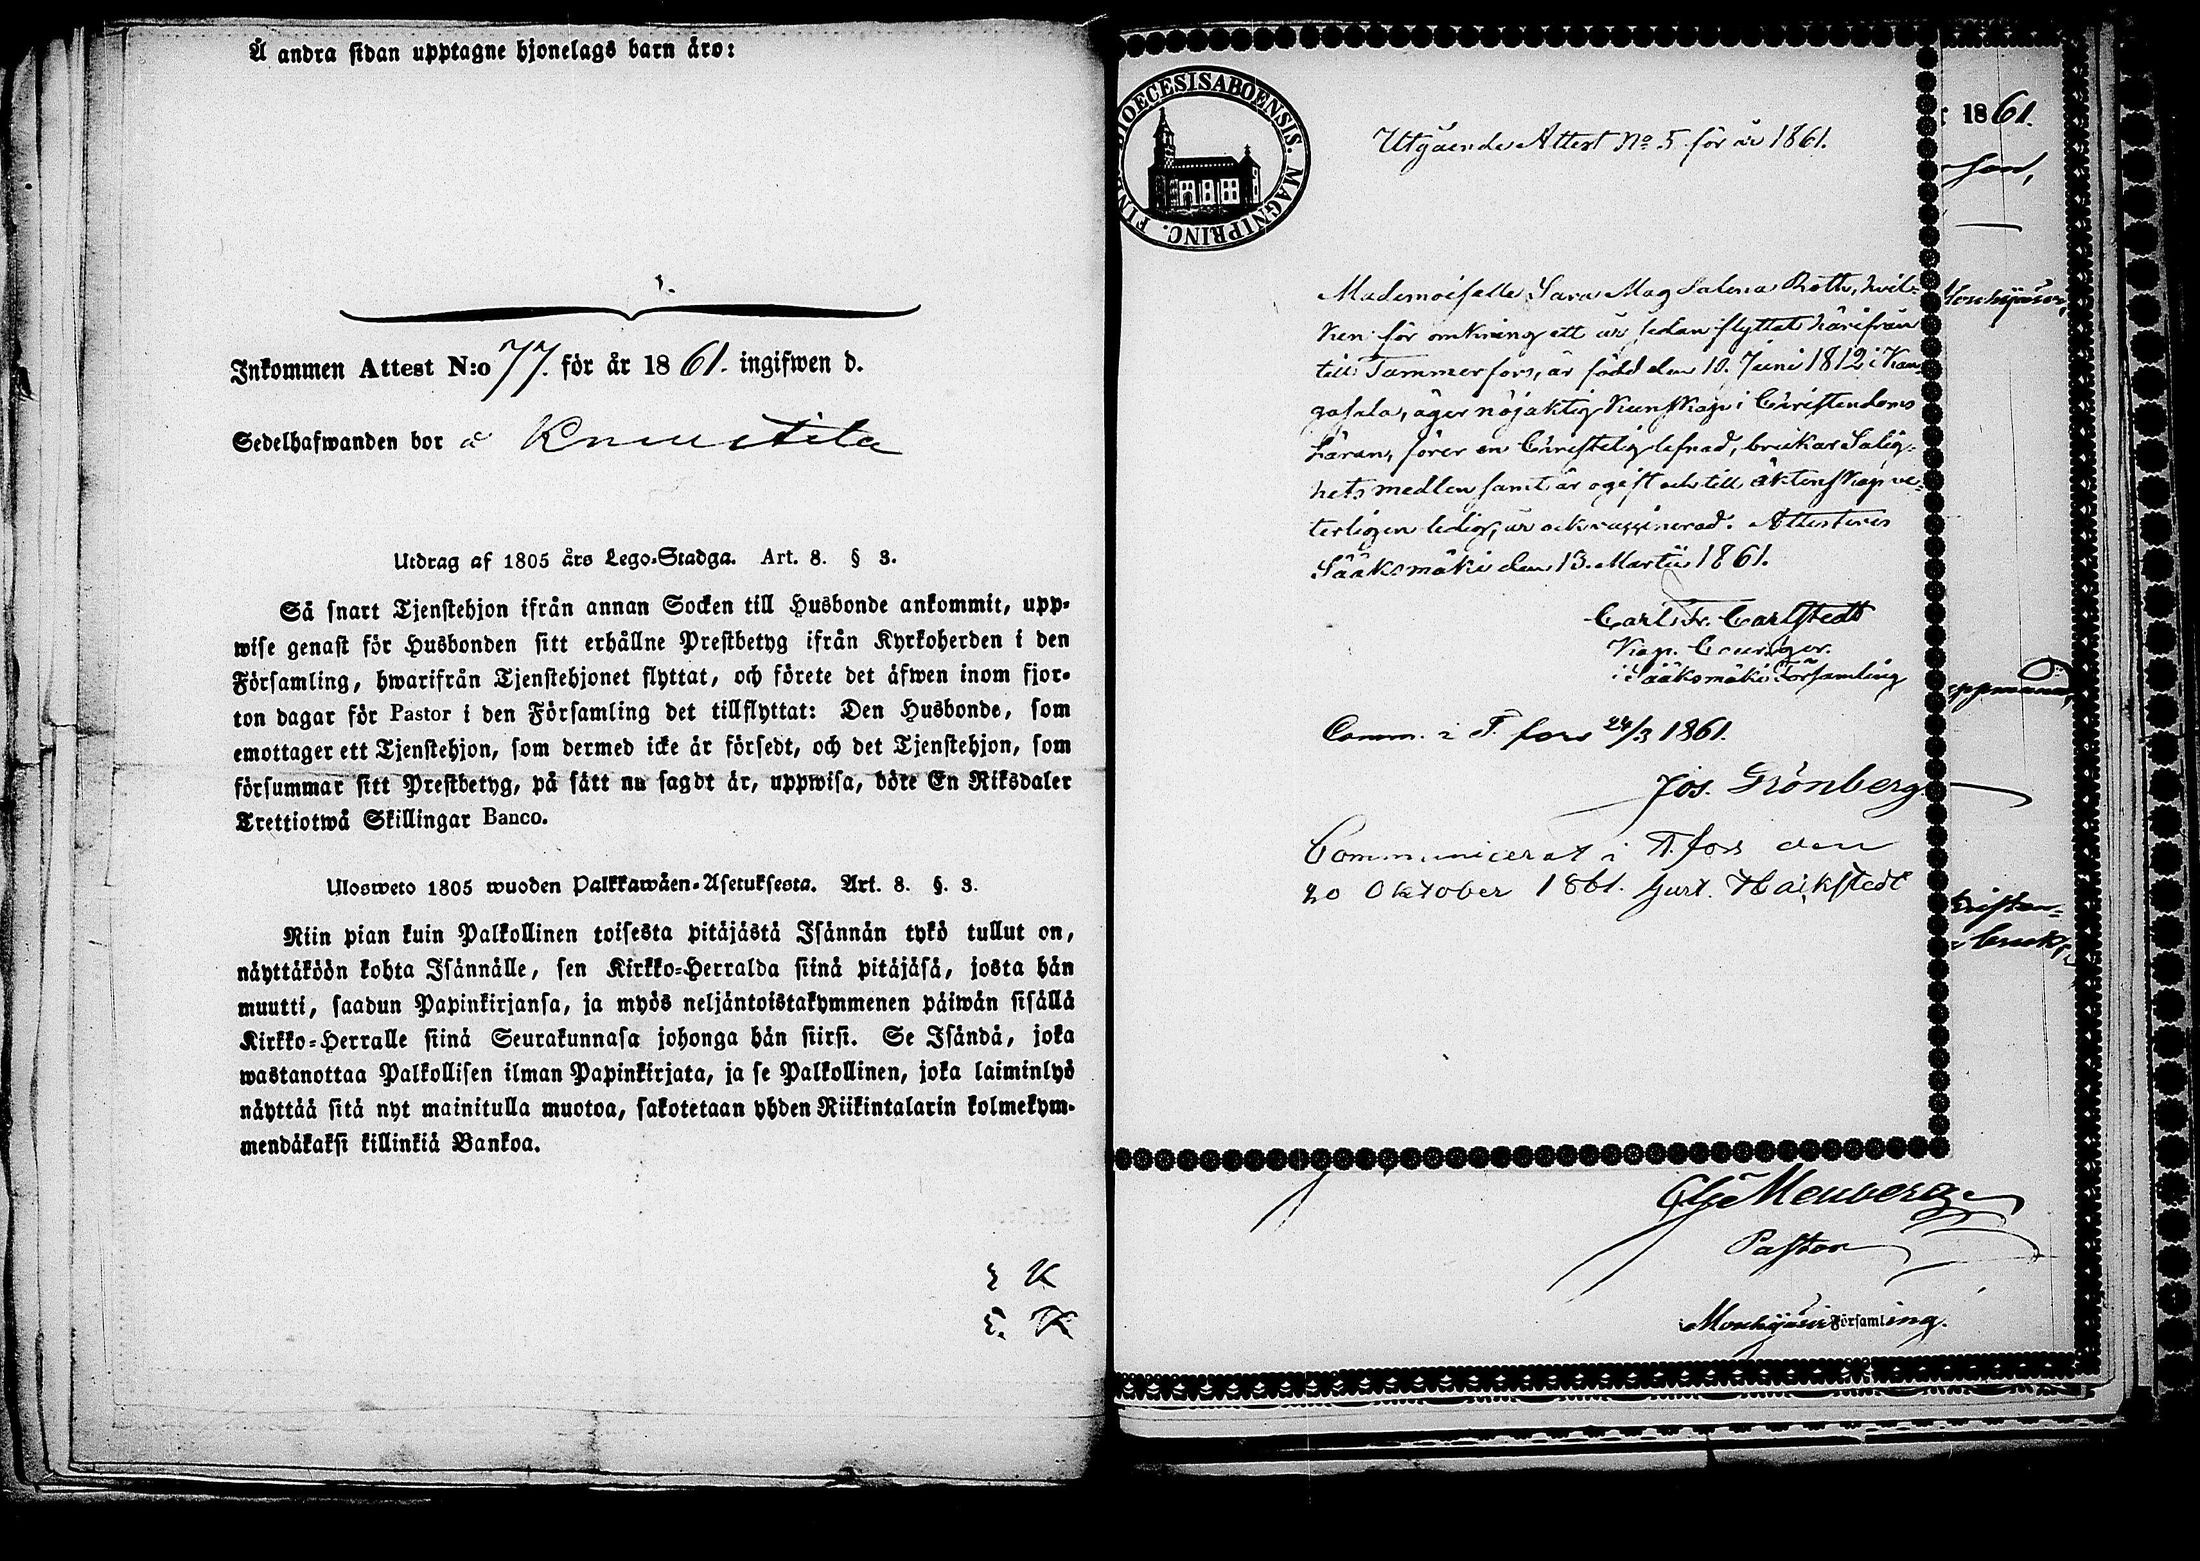 Å andra sidan upptagne hjonelags barn äro:
Inkommen Attest N:o 77. för år 1861. ingifwen d.
Sedelhafwanden bor å Knuutila
Utdrag af 1805 års Lego-Stadga. Art. 8. § 3.
Så snart Tjenstehjon ifrån annan Socken till Husbonde ankommit, upp-
wise genast för Husbonden sitt erhållne Prestbetyg ifrån Kyrkoherden i den
Församling, hwarifrån Tjenstehjonet flyttat, och förete det äfwen inom fjor-
ton dagar för Pastor i den Församling det tillflyttat: Den Husbonde, som
emottager ett Tjenstehjon, som dermed icke är försedt, och det Tjenstehjon, som
försummar sitt Prestbetyg, på sätt nu sagdt är, uppwisa, böte En Riksdaler
Trettiotwå Skillingar Banco.
Ulosweto 1805 wuoden Palkkawäen-Asetuksesta. Art. 8. §. 3.
Niin pian kuin Palkollinen toisesta pitäjästä Isännän tykö tullut on,
näyttäköön kohta Isännälle, sen Kirkko-Herralda siinä pitäjäsä, josta hän
muutti, saadun Papinkirjansa, ja myös neljäntoistakymmenen päiwän sisällä
Kirkko-Herralle siinä Seurakunnasa johonga hän siirsi. Se Isändä, joka
wastanottaa Palkollisen ilman Papinkirjata, ja se Palkollinen, joka laiminlyö
näyttää sitä nyt mainitulla muotoa, sakotetaan yhden Riikintalarin kolmekym-
mendäkaksi killinkiä Bankoa.
DIOECESIS ABOENSIS. MAGNI PRINC. FIN
Utgående Attest No 5 för år 1861.
Mademoiselle Sara Magdalena Roth, hvil-
ken för omkring ett år sedan flyttat härifrån
till Tammerfors, är född den 10. Juni 1812 i Kan-
gasala, äger nöjaktig kunskap i Christendoms
Läran, förer en Christelig lefnad, brukar Salig-
hets medlen samt är ogift och till äktenskap ve-
terligen ledig, är ock vaccinerad. Attesteras
Sääksmäki den 13. Martii 1861.
Carl Fr. Carlstedt
Kap.
i Sääksmäki Församling
Comm. i T. fors 24/3 1861.
Jos. Grönberg.
Communicerat i T. fors den
20 Oktober 1861. Gust. Hackstedt
1861.
son,
Mouhijärvi
Pastor
i Mouhijärvi Församling.